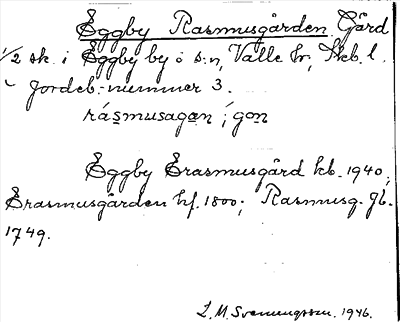 Eggby Rasmusgården Gård
1/2 sk. i Eggby by o s:n, Valle hr, Skb. l.
Jordeb. nummer 3.
råsmusagan, -gon
Eggby Erasmusgård kb. 1940;
Erasmusgården hf. 1800; Rasmusg. jb.
1749.
L. M. Svennungsson. 1946.